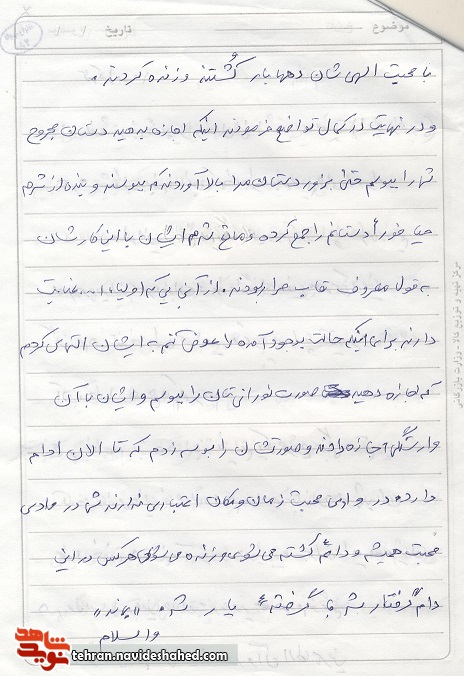 موضوع تاریخ
با محبت الهی شان دهها بار کُشتند و زنده کردند.
و در نهایت در کمال تواضع فرمودند اینکه اجازه بدهید دستان مجروح
شما را ببوسم حتی بزور دستان مرا بالا آوردند که ببوسند و بنده از شرم
حیا فوراً دستانم را جمع کرده و مانع شدم ایشان با این کارشان
به قول معروف قاب مرا ربودند. از آنجایی که اولیاء ... عنایت
دارند برای اینکه حالت بوجود آمده را عوض کنم به ایشان التماس کردم
که اجازه دهید صورت نورانی تان را ببوسم و ایشان با آن
وارستگی اجازه دادند و صورتشان را بوسه زدم که تا الان ادامه
دارد در وادی محبت زمان و مکان اعتباری ندارند شما در وادی
محبت همیشه و دائم کشته می شوی و زنده می شوی هر کس در این
دام گرفتار شد با گرفته یار شد. «بماند»
والسلام
شاهد
نوید
tehran.navideshahed.com
مرکز تهیه و توزیع کالا - وزارت بازرگانی